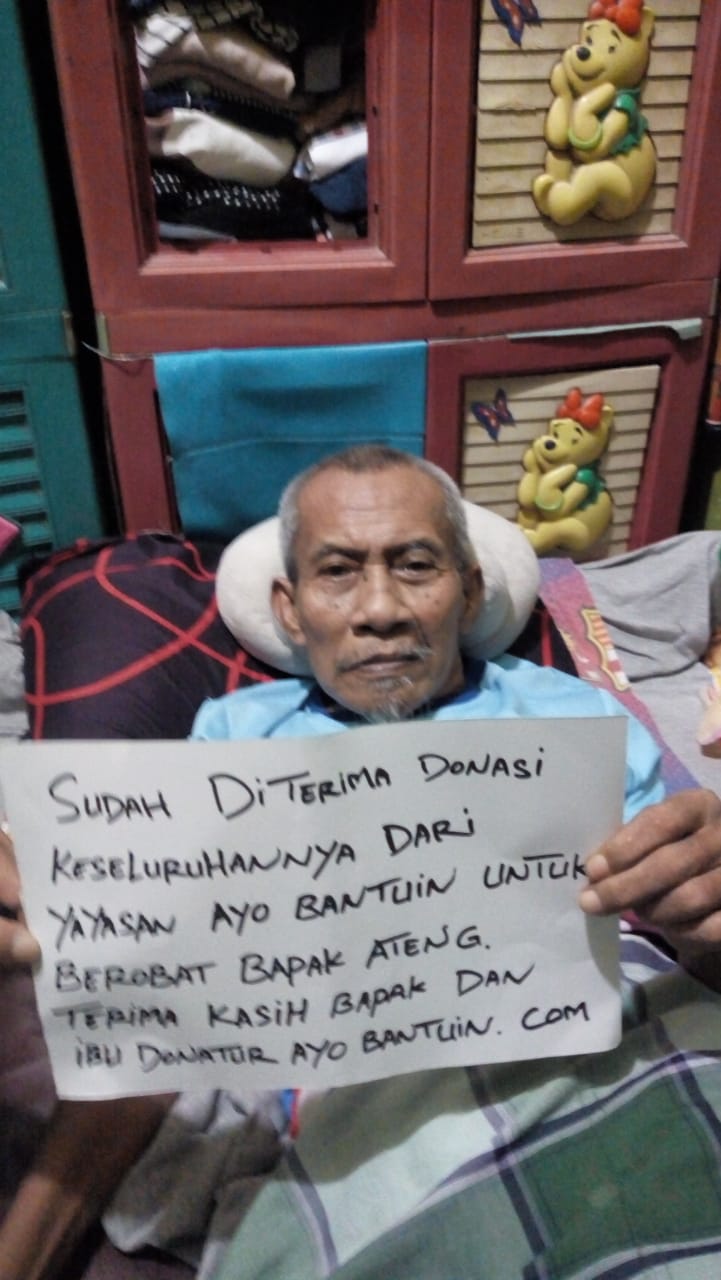 SUDAH DiTERIMA DONASi
KESELURUHANNYA DARi
YAYASAN AYO BANTUiN UNTUK
BEROBAT BAPAK ATENG.
TERiMA KASiH BAPAK DAN
iBU DONATUR AYO BANTUiN. COM